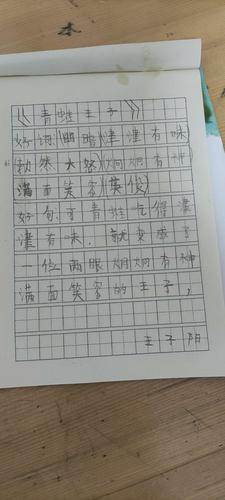 《青蛙王子》
好词:(幽暗)津津有味
勃然大怒)炯炯有神
满面笑容(英俊)
好句:于青蛙吃得津
津有味.就变成了
一位两眼炯炯有神
满面笑容的王子,
王子阳